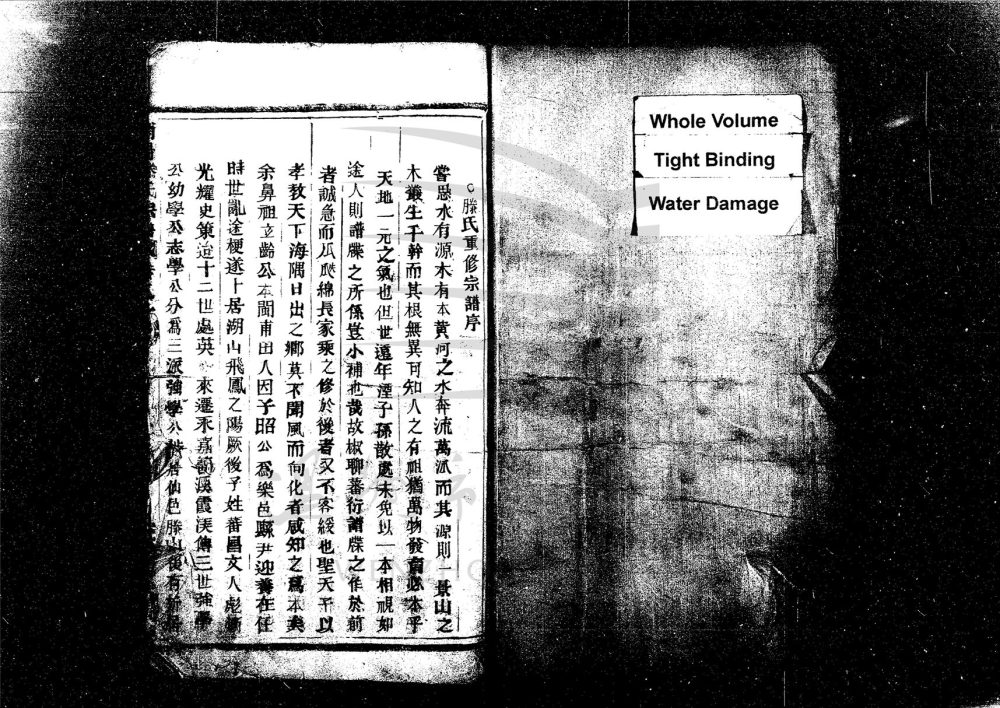 滕氏重修宗譜序
嘗思水有源木有本黃河之水奔流萬派而其源則一景山之
木叢生千幹而其根無異可知人之有祖猶萬物發育必本乎
天地一元之氣也但世遠年湮子孫散處未免以一本相視如
途人則譜牒之所係豈小補也哉故椒聊蕃衍譜牒之作於前
者誠急而瓜瓞綿長家乘之修於後者又不容緩也聖天子以
孝教天下海隅日出之鄉莫不聞風而向化者咸知之爲本矣
余鼻祖立齡公本閩甫田人因子昭公爲樂邑縣尹迎養在任
時世亂途梗遂卜居湖山飛鳳之陽厥後子姓蕃昌文人彪炳
光耀史策迨十二世處英 來遷永嘉 溪霞渓傳三世強學
公幼學公志學公分爲三派強學公 居仙邑滕山後有
Whole Volume
Tight Binding
Water Damage